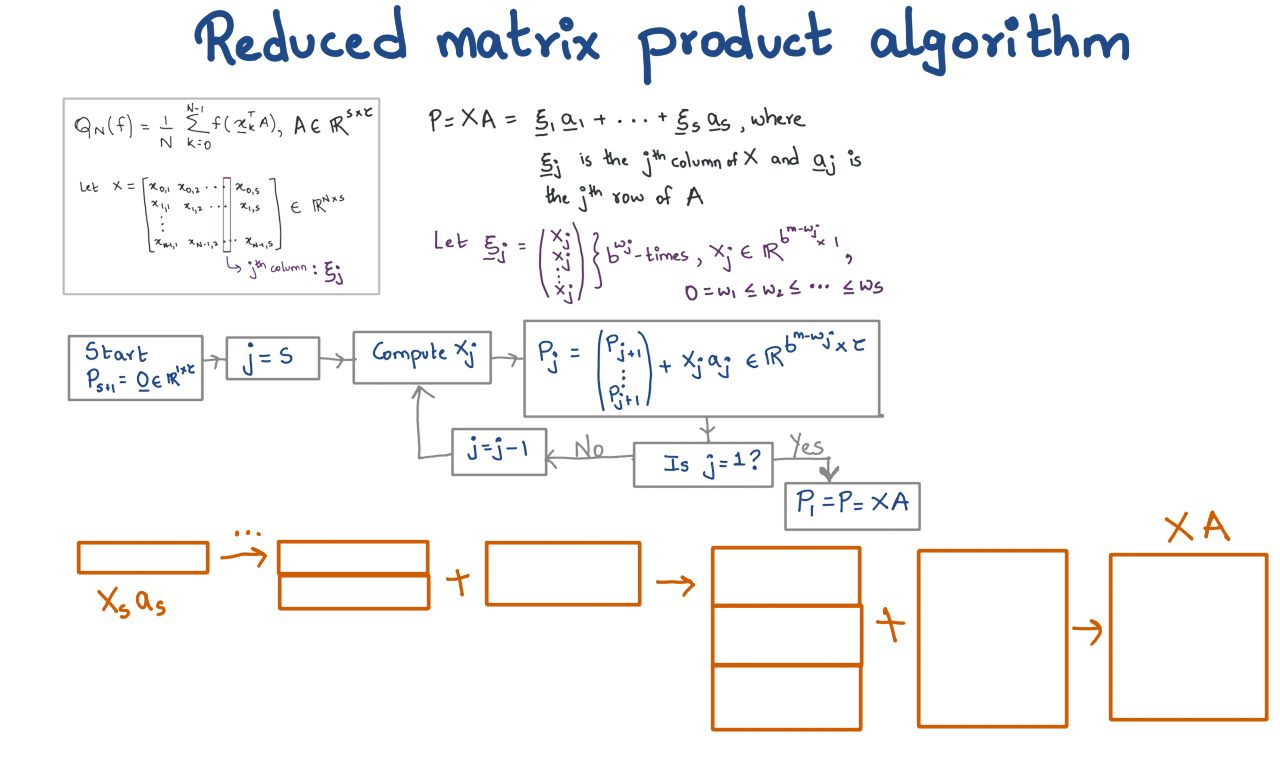 Reduced matrix product algorithm
Q_N(f) = 1/N ∑_{k=0}^{N-1} f(x_k^T A), A ∈ ℝ^{s×τ}
Let X = [x_{0,1} x_{0,2} ... x_{0,s}
x_{1,1} x_{1,2} ... x_{1,s}
⋮
x_{N-1,1} x_{N-1,2} ... x_{N-1,s}] ∈ ℝ^{N×s}
↳ jth column : ξ_j
P = XA = ξ_1 a_1 + ... + ξ_s a_s, where
ξ_j is the jth column of X and a_j is
the jth row of A
Let ξ_j = (X_j X_j ⋮ X_j) } b^{w_j}-times, X_j ∈ ℝ^{b^{m-w_j} × 1},
0 = w_1 ≤ w_2 ≤ ... ≤ w_s
Start
P_{s+1} = 0 ∈ ℝ^{1×τ}
j = s
Compute X_j
P_j = (P_{j+1} ⋮ P_{j+1}) + X_j a_j ∈ ℝ^{b^{m-w_j} × τ}
j=j-1
No
Is j=1?
Yes
P_1 = P = XA
...
X_s a_s
+
+
XA